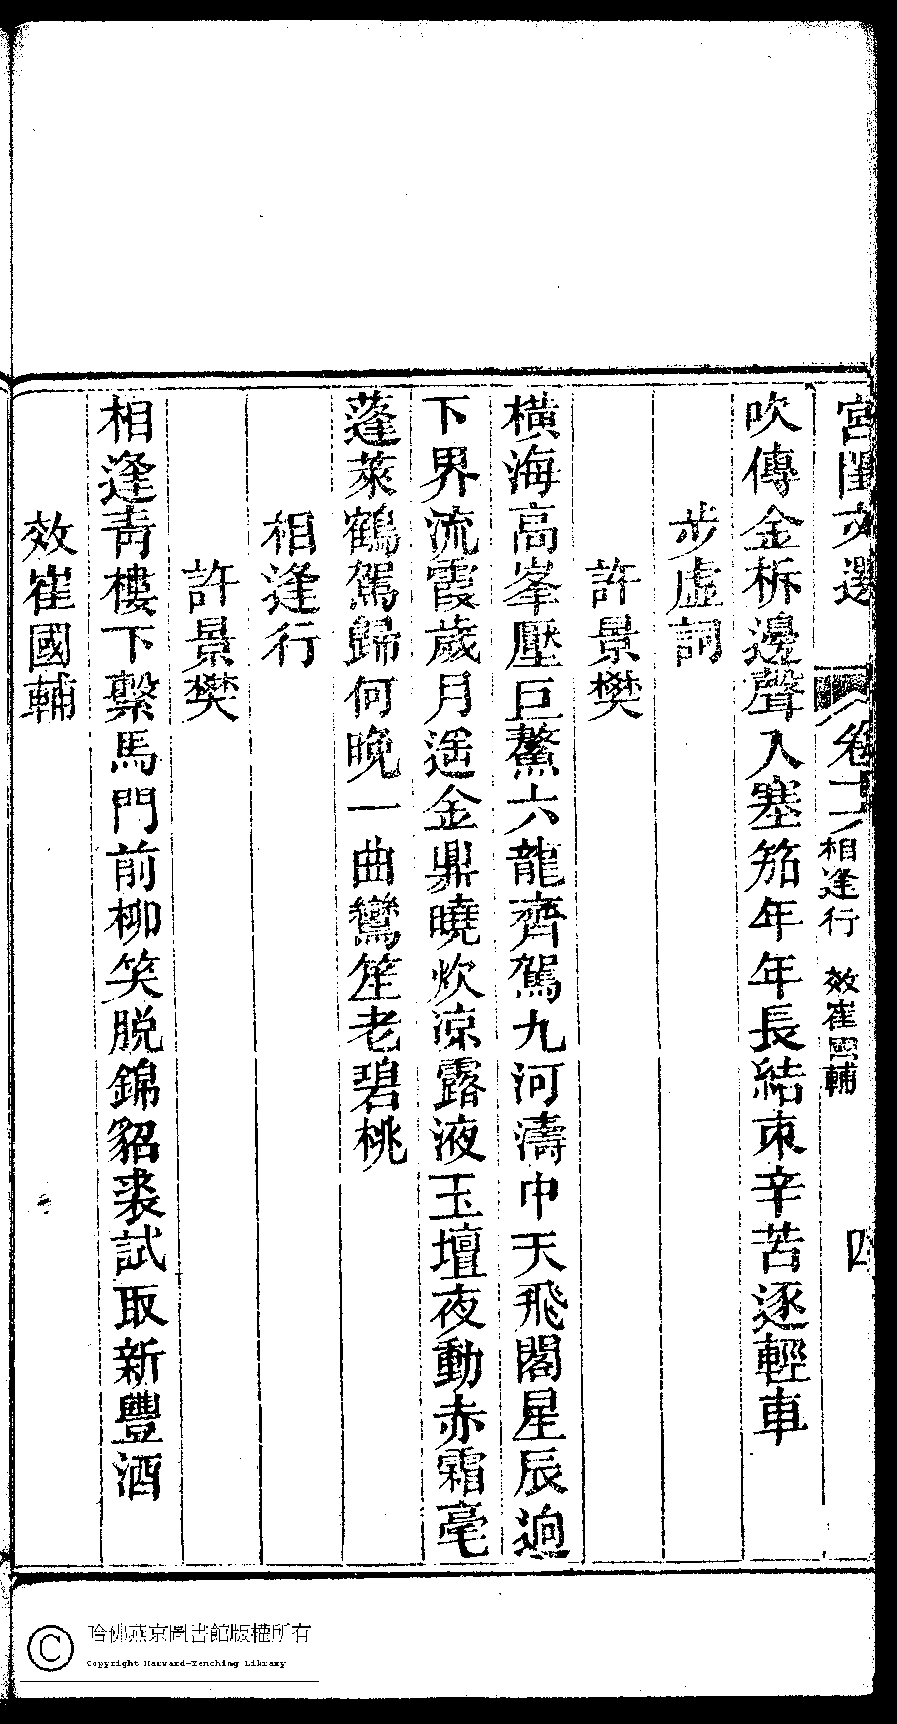 宮閨文選 卷十六 相逢行 效崔國輔 四
吹傳金柝邊聲入塞笳年年長結束辛苦逐輕車
步虛詞
許景樊
橫海高峯壓巨鰲六龍齊駕九河濤中天飛閣星辰逈
下界流霞歲月遥金鼎曉炊凉露液玉壇夜動赤霜毫
蓬萊鶴駕歸何晚一曲鸞笙老碧桃
相逢行
許景樊
相逢靑樓下繫馬門前柳笑脱錦貂裘試取新豐酒
效崔國輔
哈佛燕京圖書館版權所有
Copyright Harvard-Yenching Library